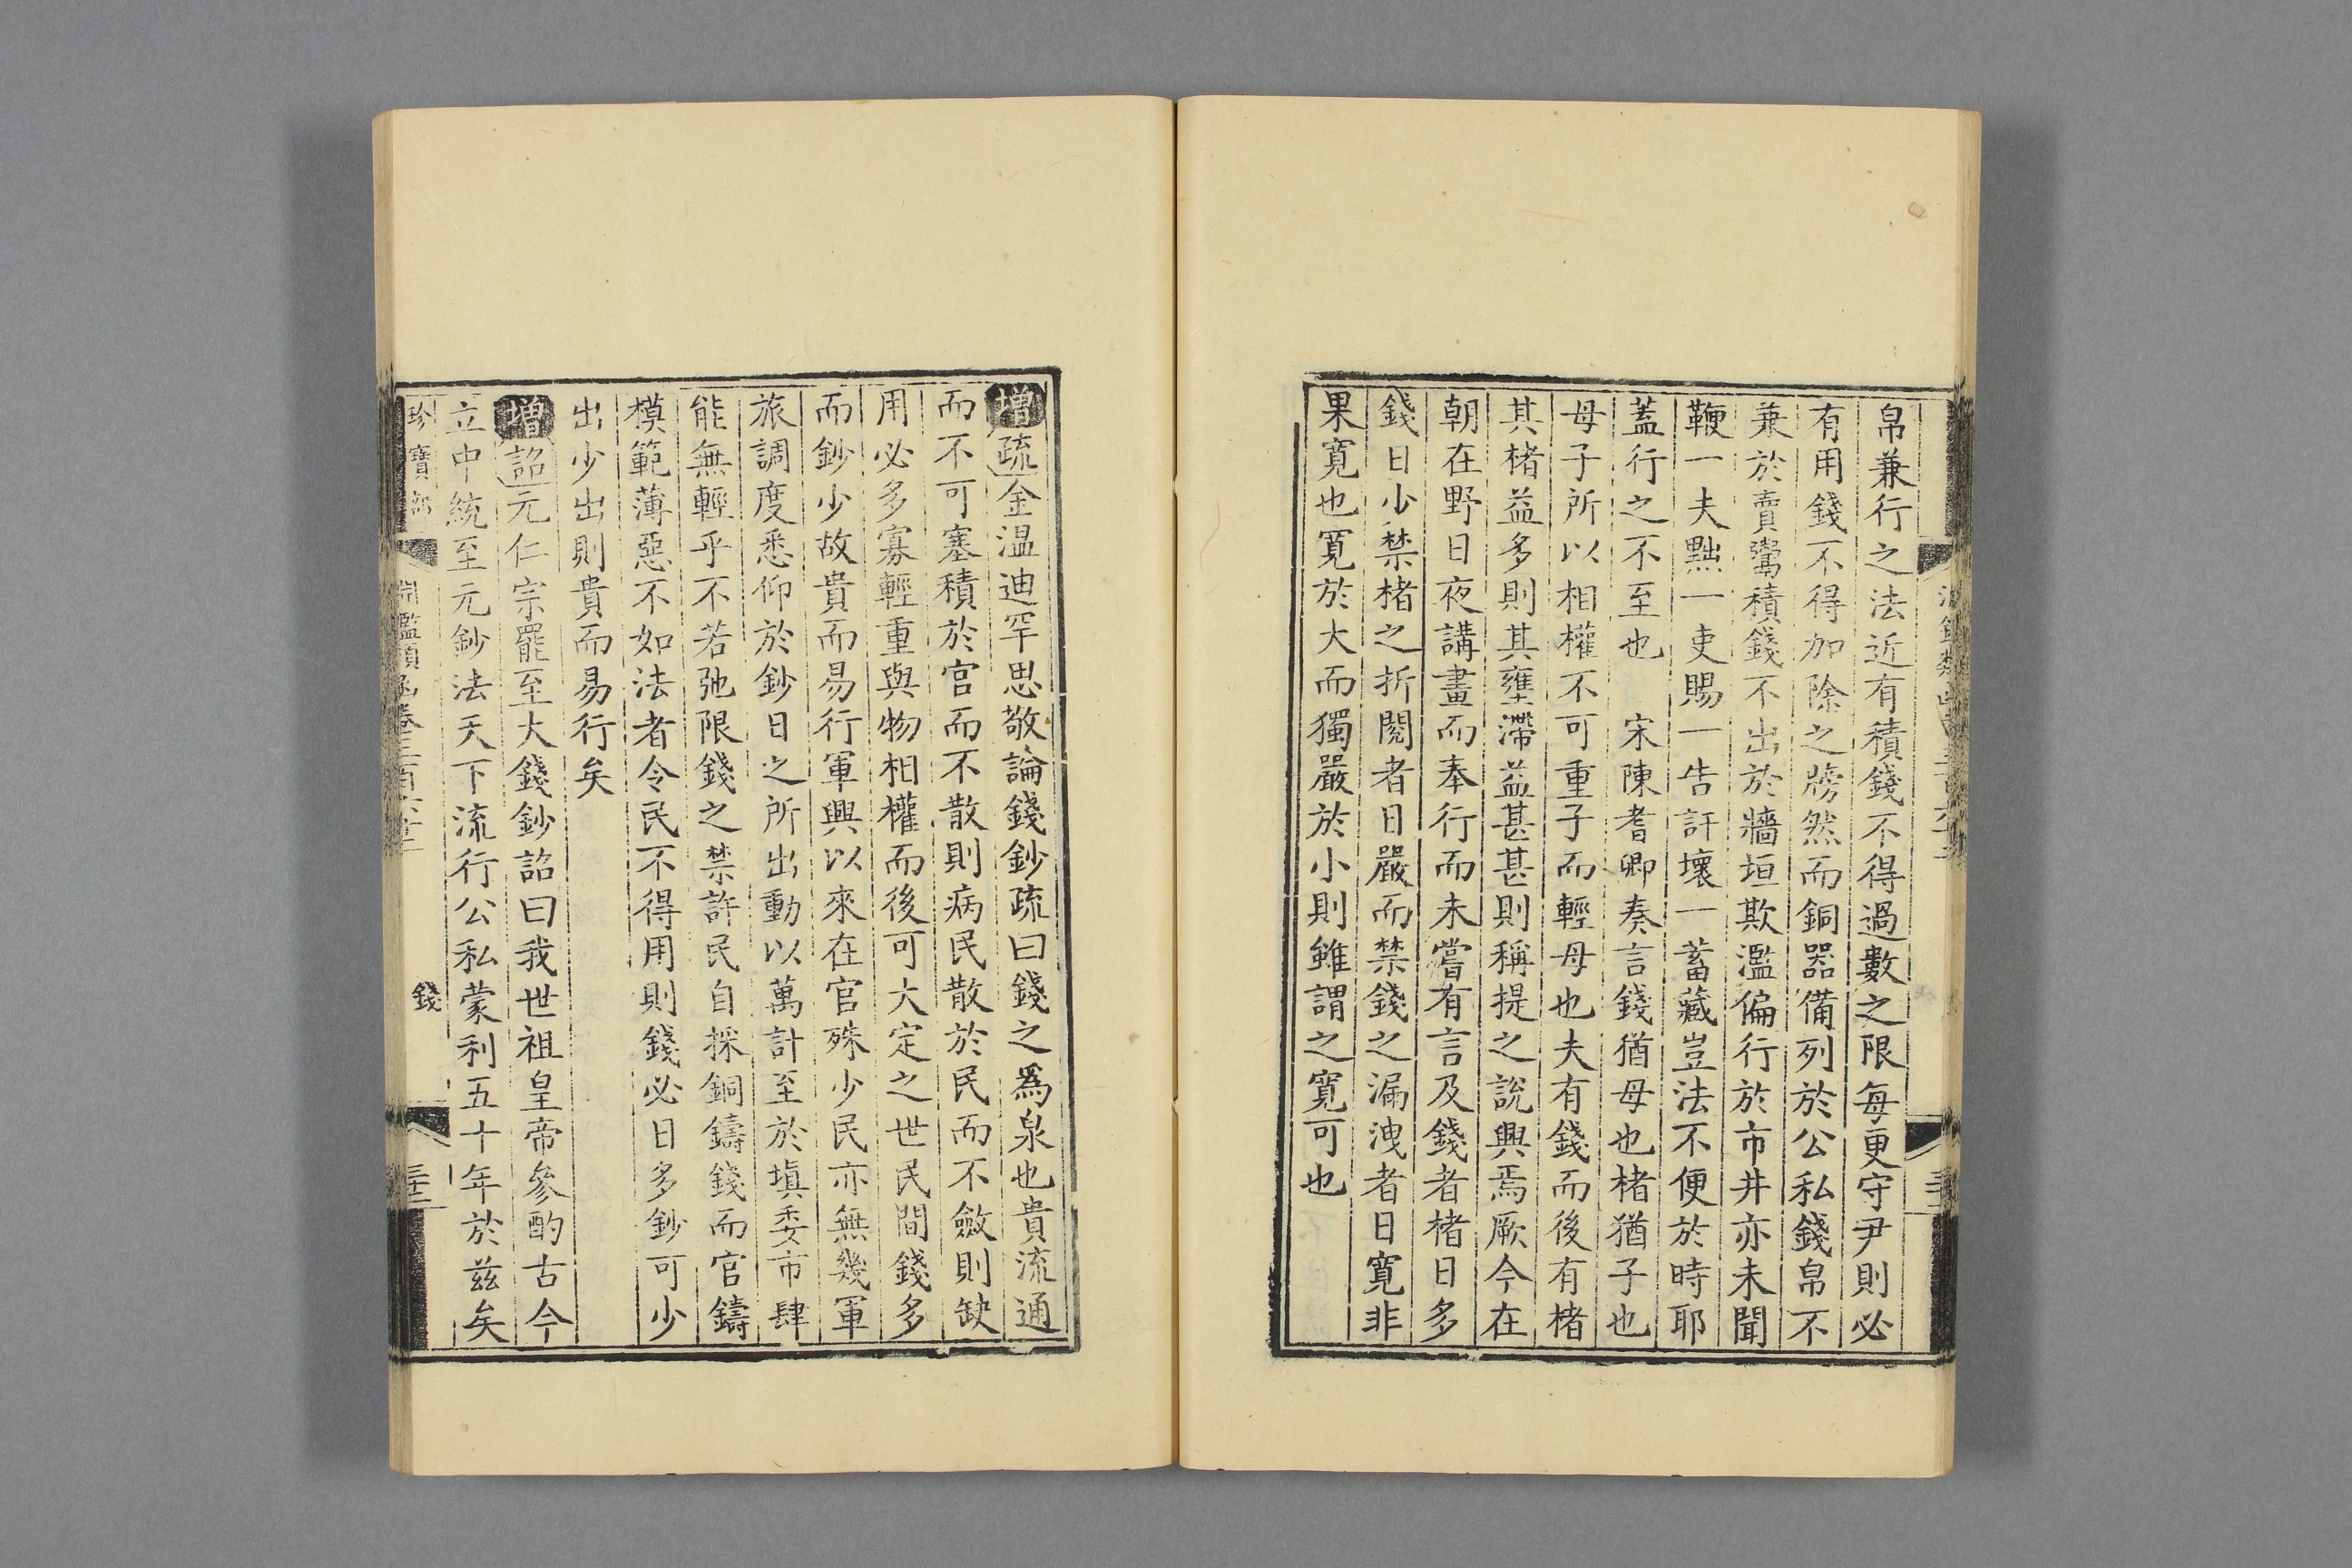 帛兼行之法近有積錢不得過數之限每更守尹則必
有用錢不得加除之牓然而銅器備列於公私錢帛不
兼於賣鬻積錢不出於牆垣欺濫偏行於市井亦未聞
鞭一夫黜一吏賜一告訐壞一蓄藏豈法不便於時耶
蓋行之不至也 宋陳耆卿奏言錢猶母也楮猶子也
母子所以相權不可重子而輕母也夫有錢而後有楮
其楮益多則其壅滯益甚甚則稱提之說興焉厥今在
朝在野日夜講畫而奉行而未嘗有言及錢者楮日多
錢日少禁楮之折閱者日嚴而禁錢之漏洩者日寬非
果寬也寬於大而獨嚴於小則雖謂之寬可也
增疏金溫迪罕思敬論錢鈔疏曰錢之爲泉也貴流通
而不可塞積於官而不散則病民散於民而不斂則缺
用必多寡輕重與物相權而後可大定之世民間錢多
而鈔少故貴而易行軍興以來在官殊少民亦無幾軍
旅調度悉仰於鈔日之所出動以萬計至於塡委市肆
能無輕乎不若弛限錢之禁許民自採銅鑄錢而官鑄
模範薄惡不如法者令民不得用則錢必日多鈔可少
出少出則貴而易行矣
增詔元仁宗罷至大錢鈔詔曰我世祖皇帝參酌古今
立中統至元鈔法天下流行公私蒙利五十年於茲矣
珍寶部 淵鑑類函卷三百六十二 錢